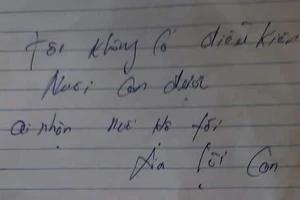 Tôi không có điều kiện
Nuôi con được
Ai nhận nuôi hộ tôi
Xin lỗi Con